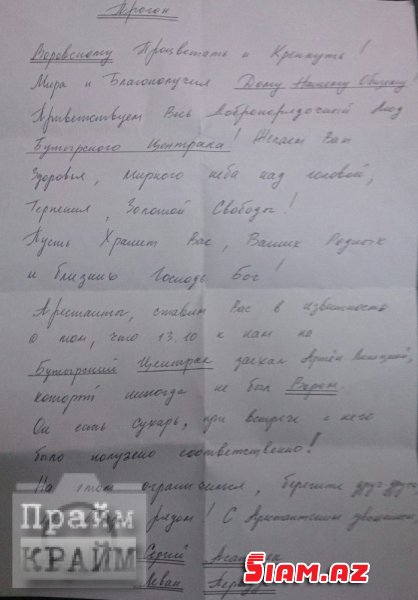 Прогон
Воровскому Процветать и Крепнуть!
Мира и Благополучия Дому Нашему Общему
Приветствуем Весь Добропорядочный Люд
Бутырского Централа! Желаем Вам
Здоровья, мирного неба над головой,
Терпения, Золотой Свободы!
Пусть Хранит Вас, Ваших Родных
и близких Господь Бог!
Арестанты, ставим Вас в известность
о том, что 13.10 к нам на
Бутырский Централ заехал Артём
который никогда не был Вором.
Он есть Сухарь, при встрече с него
было получено соответственно!
На этом ограничимся, берегите друг друга
рядом! С Арестантским уважением
Прайм
КРАЙМ
Сергей
Леван
SIAM.AZ